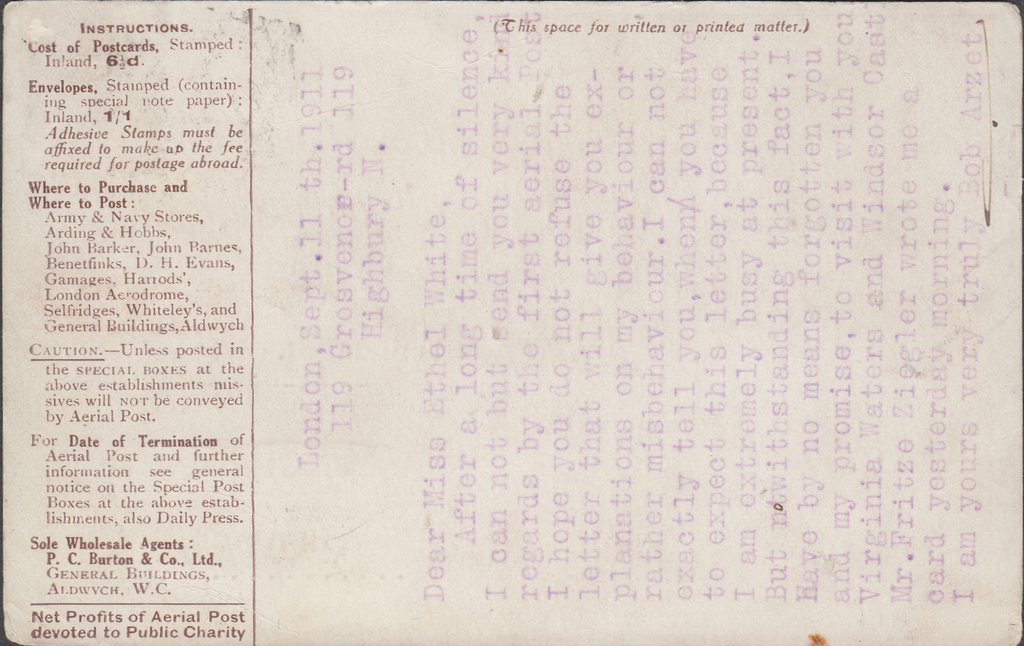 INSTRUCTIONS.
Cost of Postcards, Stamped:
Inland, 6½d.
Envelopes, Stamped (contain-
ing special note paper):
Inland, 1/1
Adhesive Stamps must be
affixed to make up the fee
required for postage abroad.
Where to Purchase and
Where to Post:
Army & Navy Stores,
Arding & Hobbs,
John Barker, John Barnes,
Benetfinks, D. H. Evans,
Gamages, Harrods',
London Aerodrome,
Selfridges, Whiteley's, and
General Buildings, Aldwych
CAUTION.—Unless posted in
the SPECIAL BOXES at the
above establishments mis-
sives will NOT be conveyed
by Aerial Post.
For Date of Termination of
Aerial Post and further
information see general
notice on the Special Post
Boxes at the above estab-
lishments, also Daily Press.
Sole Wholesale Agents:
P. C. Burton & Co., Ltd.,
GENERAL BUILDINGS,
ALDWYCH, W.C.
Net Profits of Aerial Post
devoted to Public Charity
(This space for written or printed matter.)
London,Sept.11 th.1911
119 Grosvenor-rd 119
Highbury N.
Dear Miss Ethel White,
After a long time of silence,
I can not but send you very kind
regards by the first aerial Post
I hope you do not refuse the
letter that will give you ex-
planations on my behaviour or
rather misbehaviour.I can not
exactly tell you,when/ you have
to expect this letter,because
I am extremely busy at present.
But notwithstanding this fact,I
have by no means forgotten you
and my promise,to visit with you
Virginia Waters and Windsor Cast
Mr.Fritze Ziegler wrote me a
card yesterday morning.
I am yours very truly Bob Arzet